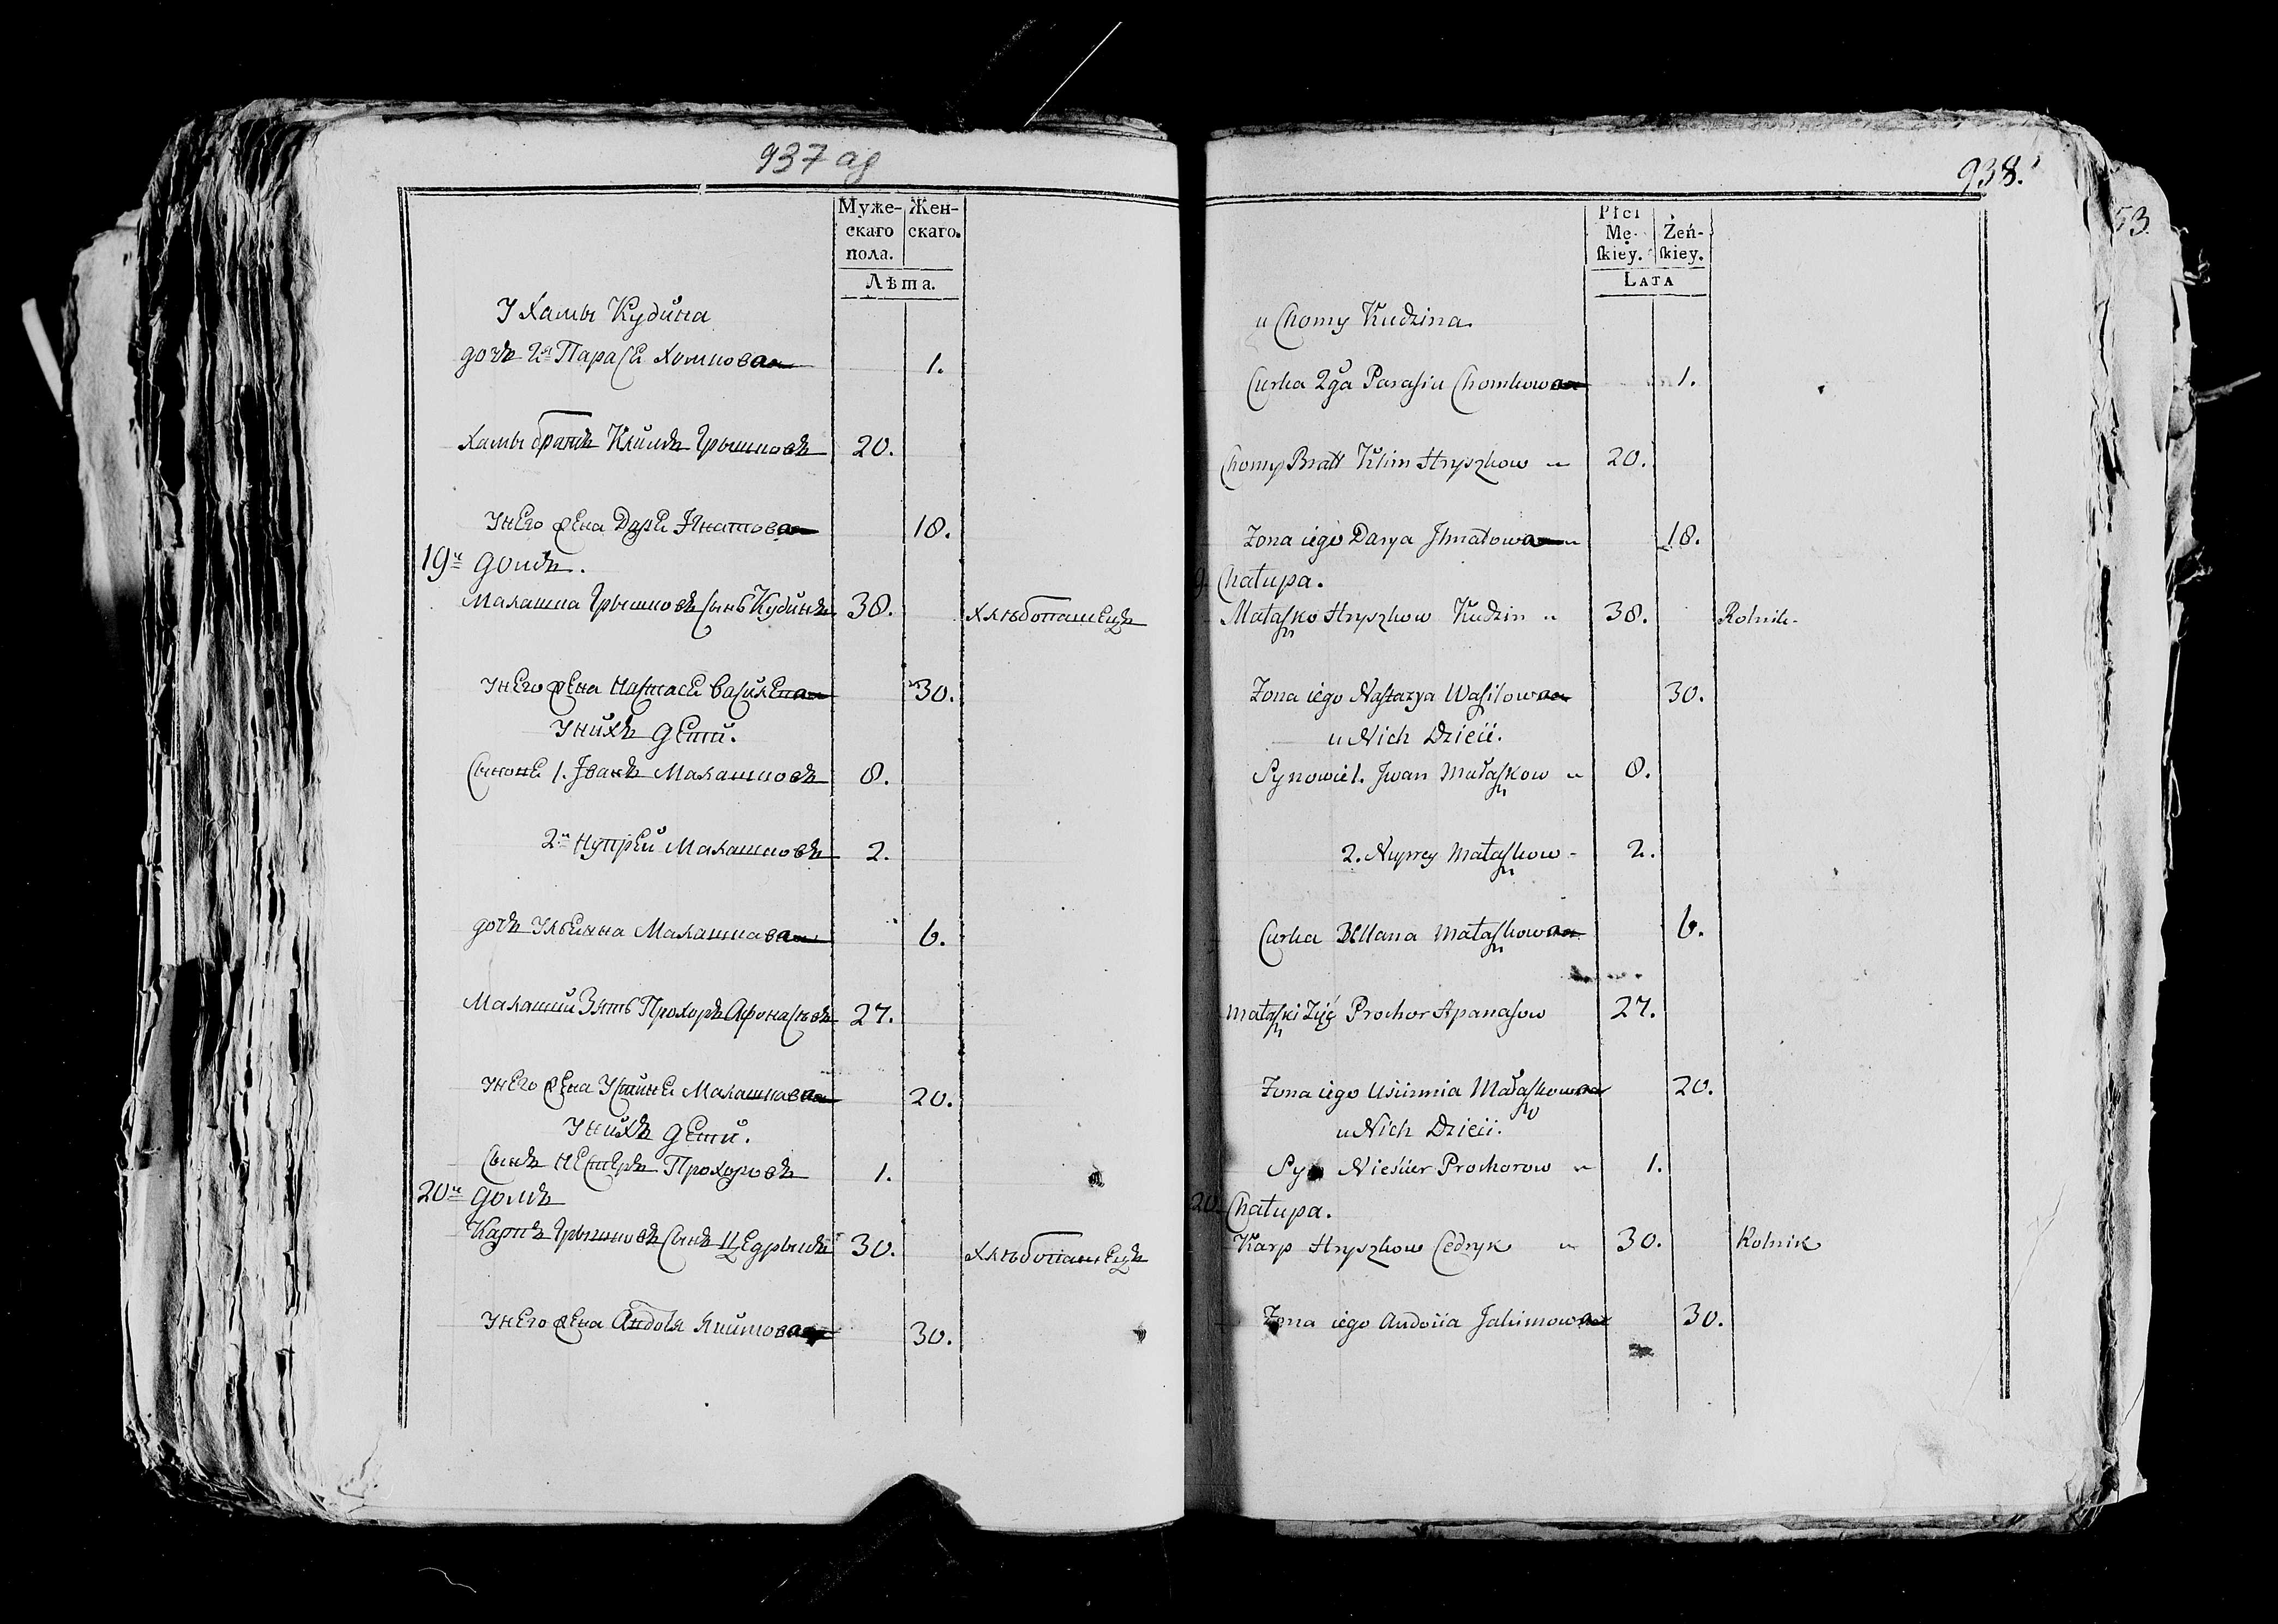 937 ад
Муже-
скаго
пола.
Жен-
скаго.
Лѣта.
У Хамы Кудина
дочь 2я Параси Хомкова 1.
Хамы братъ Климъ Грышковъ 20.
У него жена Дарĕи Игнатова 18.
19й домъ.
Малашка Грышковъ сынъ Кудинъ 38. Хлѣбопашецъ
У него жена Настасĕи Василева 30.
У нихъ дети.
Сыновĕ 1. Іванъ Малашковъ 8.
2й Нупрей Малашковъ 2.
дочь Ульянна Малашкова 6.
Малашки Зять Прохоръ Афонасьевъ 27.
У него жена Устинĕ Малашкова 20.
У нихъ дети.
Сынъ Нестеръ Прохоровъ 1.
20й домъ
Карпъ Грышковъ сынъ Цедрыкъ 30. Хлѣбопашецъ
У него жена Андоĕя Якимова 30.
938.
53.
Płci
Mę-
ſkiey.
Żeń-
ſkiey.
LATA
u Chomy Kudzina.
Curka 2ga Parasia Chomkowa 1.
Chomy Bratt Klim Hryszkow 20.
Żona iego Darya Ihnatowa 18.
9. Chałupa.
Małaſko Hryszkow Kudzin 38. Rolnik.
Żona iego Naſtazya Waſilowa 30.
u Nich Dzieci.
Synowie 1. Jwan Małaſkow 8.
2. Nuprey Małaſkow 2.
Curka Ullana Małaſkowa 6.
Małaſki Zięć Prochor Apanaſow 27.
Żona iego Uścinnia Małaſkowa 20.
u Nich Dzieci.
Syn Nieścier Prochorow 1.
20. Chałupa.
Karp Hryszkow Cedryk 30. Rolnik
Żona iego Audocia Jakimowa 30.